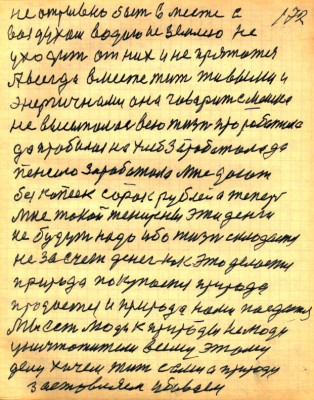 172
не отрывно быть вместе с
воздухом водою и землею не
уходит от них и не прятатся
А всегда вместе жить живыми и
энергичными она говарит
не высыпалась всю жизнь проработала
да пробилась на хлеб Заработала да
пенсию заработала Мне дают
без копеек сорок рублей а теперь
мне такой женщины эти деньги
не будут надо ибо жизнь складается
не за счет денег как это делается
природа покупается природа
продается и природа нами поедается
Мы есть люди к природы не люди
уничтожители всему этому
делу хочем жить сами а природу
заставляем убиваем